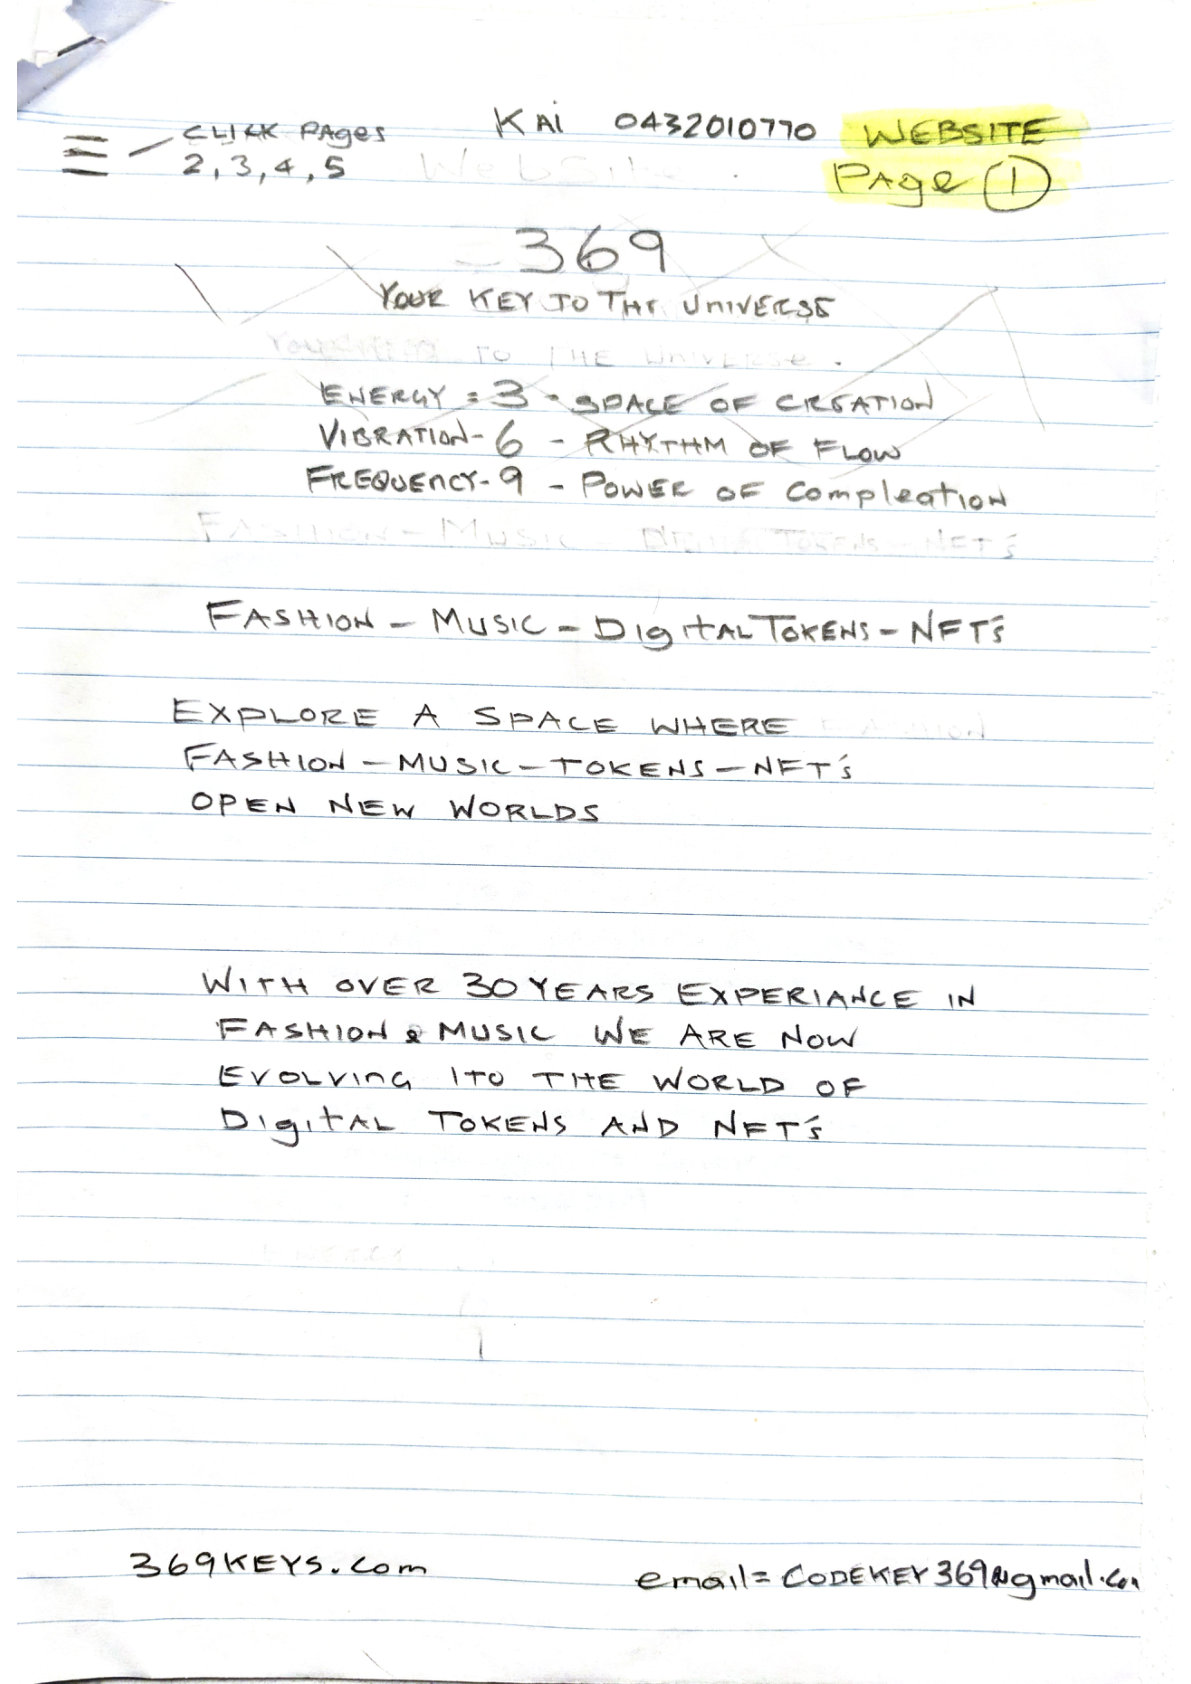 CLICK PAges
2, 3, 4, 5
KAi 0432010770
WEBSITE
PAge 1
WebSite
369
YOUR KEY TO THE UNIVERSE
TO THE UNIVERSE.
ENERGY = 3 - SPACE OF CREATION
VIBRATION - 6 - RHYTHM OF FLOW
FREQUENCY - 9 - POWER OF CompleATION
FASHION - MUSIC - DIGITAL TOKENS - NFT'S
FASHION - MUSIC - DigitAL TOKENS - NFT'S
EXPLORE A SPACE WHERE
FASHION - MUSIC - TOKENS - NFT'S
OPEN NEW WORLDS
WITH OVER 30 YEARS EXPERIANCE IN
FASHION & MUSIC WE ARE NOW
EVOLVING ITO THE WORLD OF
DigitAL TOKENS AND NFT'S
369KEYS.com
email = CODEKEY369@gmail.com